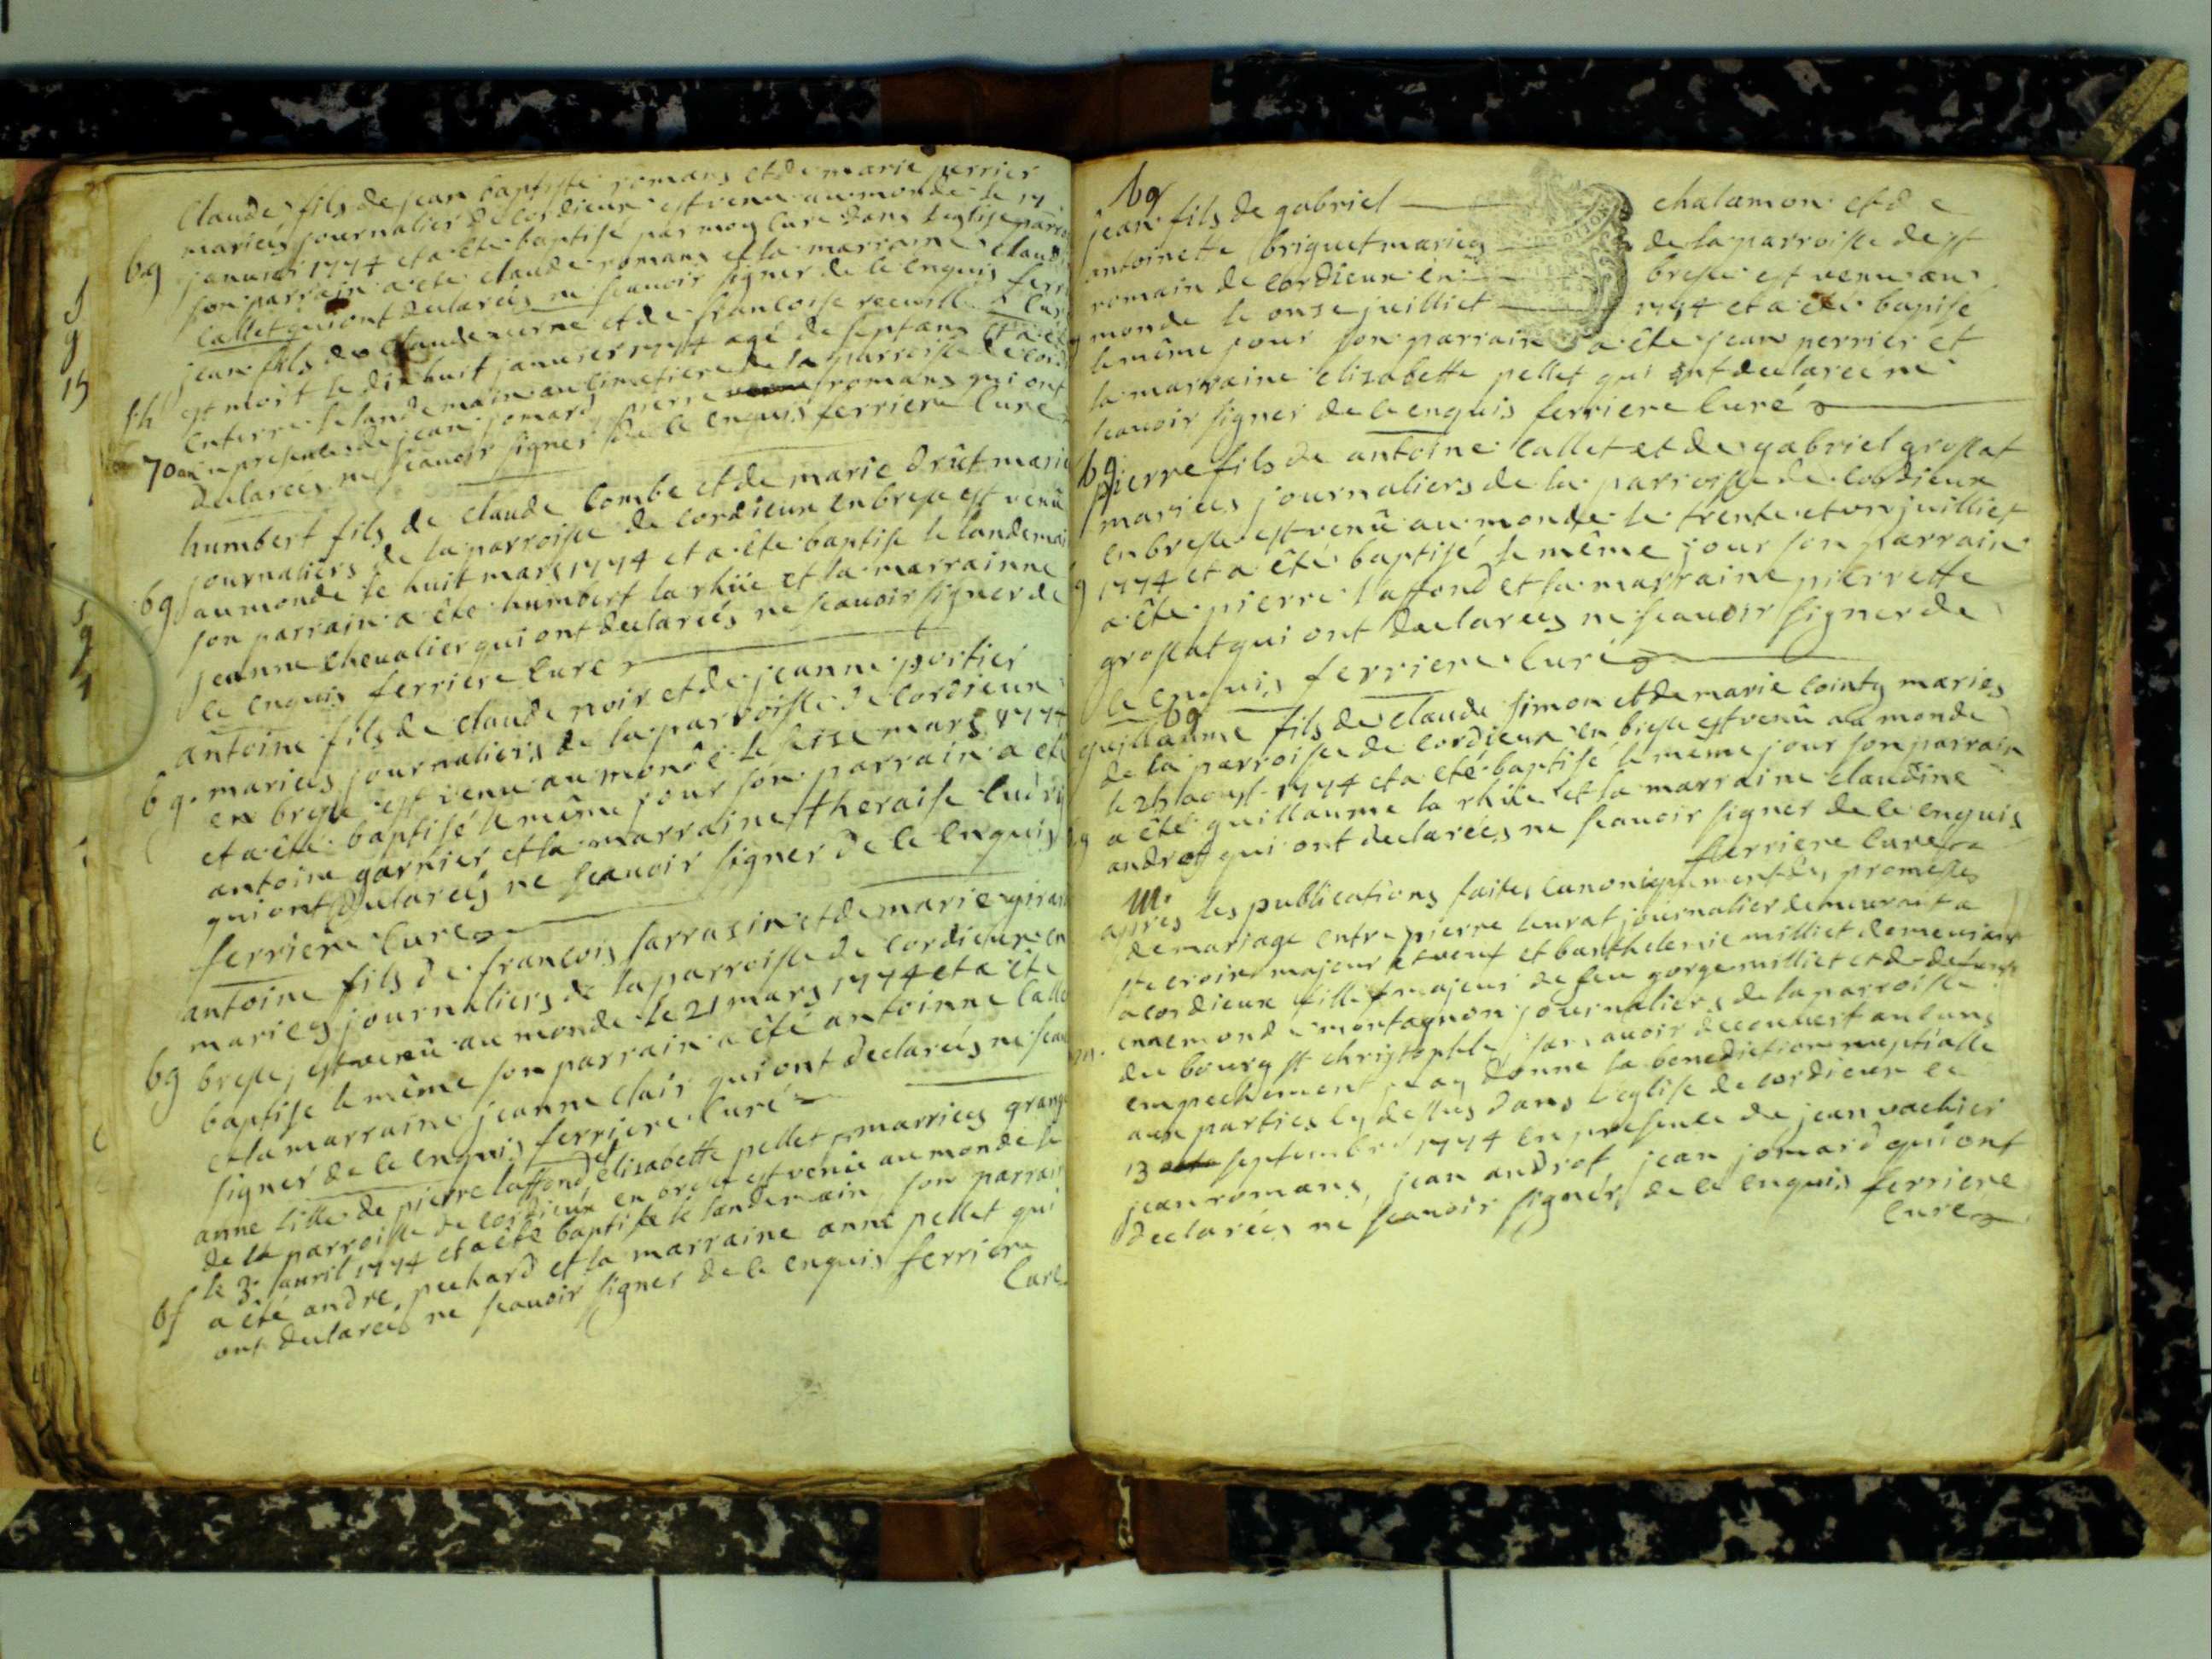 claude fils de jean baptiste romans et de marie perrier
mariées journalier de cordieux est venu au monde le 17
bg janvier 1774 et a été baptisé par moy curé dans leglise
son parrain a été claude romans et la marraine
callet qui ont declareés ne scauoir signer de ce enquis
jean fils de claude et de francoise
est mort le dix huit janvier 1774 agé de sept ans
enterré le landemain au cimetiere de la parroisse de
en presences de jean jomard pierre romans qui ont
70
declareés ne scauoir signer de ce enquis ferriere curé
humbert fils de claude combe et de marie drut
journaliers de la parroisse de cordieux en bresse est venû
bg au monde le huit mars 1774 et a éte baptisé le landemain
son parrain a éte humbert la rhüe et la marrainne
jeanne cheualier qui ont declareés ne scauoir signer de
ce enquis ferriere curé
antoine fils de claude noir et de jeanne portier
bg. mariées journaliers de la parroisse de cordieux
en bresse est venu au monde le seise mars 1774
et a été baptisé le même jour son parrain a été
antoine garnier et la marraine theraise
qui ont declareés ne scauoir signer de ce enquis
ferriere curé
antoine fils de francois sarrasin et de marie
mariées journaliers de la parroisse de cordieux en
bg bresse, est venû au monde le 21 mars 1774 et a éte
baptisé le même son parrain a été antoinne
et la marraine jeanne clair qui ont declareés ne
signer de ce enquis ferriere curé
anne fille de pierre laffond et elisabette pellet marriées
de la parroisse de cordieux en bresse est venüe au monde le
bf le 3. auril 1774 et a été baptisée le landemain, son parrain
a été andre pechard et la marraine anne pellet qui
ont declareés ne scauoir signer de ce enquis ferriere
curé
bg
jean fils de gabriel chalamon et de
antoinette briquet mariées de la parroisse de st
romain de cordieux en bresse est venu au
monde le onse juilliet 1774 et a été baptisé
le même jour son parrain a éte jean perrier et
la marraine elisabette pellet qui ont declareé ne
scauoir signer de ce enquis ferriere curé
bg
pierre fils de antoine callet et de gabriel grossat
mariées journaliers de la parroisse de cordieux
en bresse est venû au monde le trente et un juilliet
1774 et a été baptisé le même jour son parrain
a éte pierre laffond et la marraine pierrette
grossat qui ont declareés ne scauoir signer de
ce enquis ferriere curé
bg
guillaume fils de claude simon et de marie cointy mariés
de la parroisse de cordieux en bresse est venû au monde
le aoust 1774 et a eté baptisé le même jour son parrain
a été guillaume la rhüe et la marraine claudine
androt qui ont declareés ne scauoir signer de ce enquis
ferriere curé
m.
apres les publications faites canoniquement des promesses
de mariage entre pierre journalier demeurant a
ste croix majeur et veuf et barthelemie milliet demeurant
a cordieux fille majeur de feu gorge milliet et de
ennemonde montagnon journaliers de la parroisse
du bourg st christophle, sans auoir decouuert aucuns
empechement donne la benediction nuptialle
aux parties cy dessus dans leglise de cordieux le
13 septembre 1774 en presence de jean vachier
jean romans, jean androt, jean jomard qui ont
declareés ne scauoir signér, de ce enquis ferriere
curé